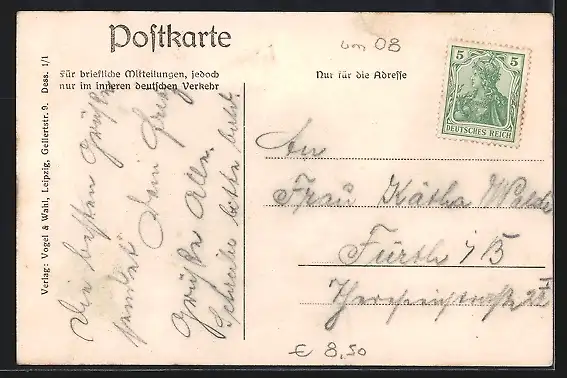 Postkarte
Für briefliche Mitteilungen, jedoch
nur im inneren deutschen Verkehr
Nur für die Adresse
von 08
5 5
DEUTSCHES REICH
Verlag: Vogel & Wahl, Leipzig, Gellertstr. 9. Dess. 1/1
Die besten Grüße
sendet Dein Fritz
Grüße Alle.
Schreibe bitte bald.
An
Frau Kätha Walde
Fürth i/B
€ 8,50